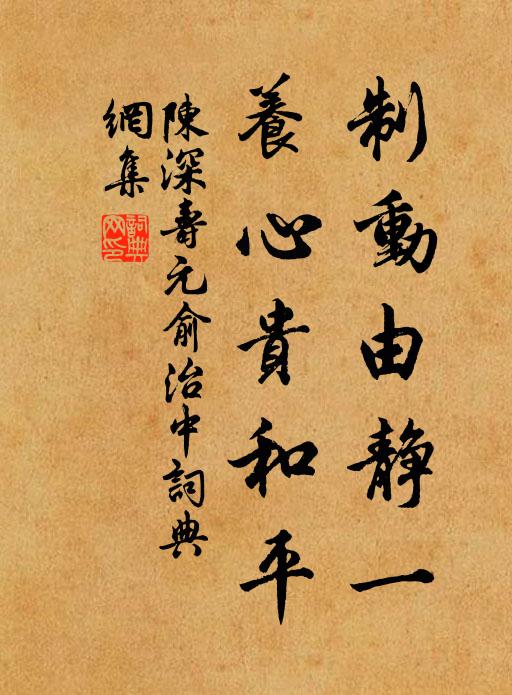 制動由静一
養心貴和平
陳深壽元俞治中詞典
網集
詞典
网印